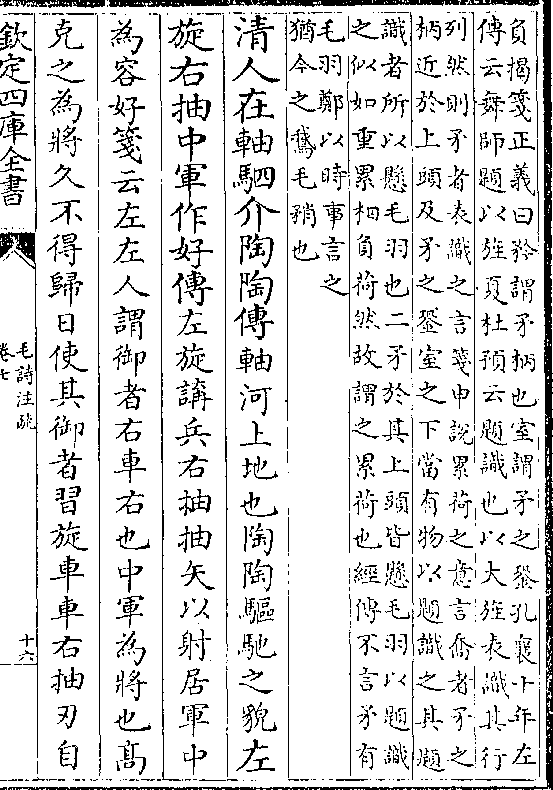 負揭箋正義曰矜謂矛柄也室謂矛之銎孔襄十年左
傳云舞師題以旌夏杜預云題識也以大旌表識其行
列然則矛者表識之言箋申說累荷之意言喬者矛之
柄近於上頭及矛之銎室之下當有物以題識之其題
識者所以懸毛羽也二矛於其上頭皆懸毛羽以題識
之似如重累相負荷然故謂之累荷也經傳不言矛有
毛羽鄭以時事言之
猶今之鵞毛矟也
清人在軸駟介陶陶傳軸河上地也陶陶驅馳之貌左
旋右抽中軍作好傳左旋講兵右抽抽矢以射居軍中
為容好箋云左左人謂御者右車右也中軍為將也高
克之為將久不得歸日使其御者習旋車車右抽刃自
欽定四庫全書
毛詩注疏
卷七
十六